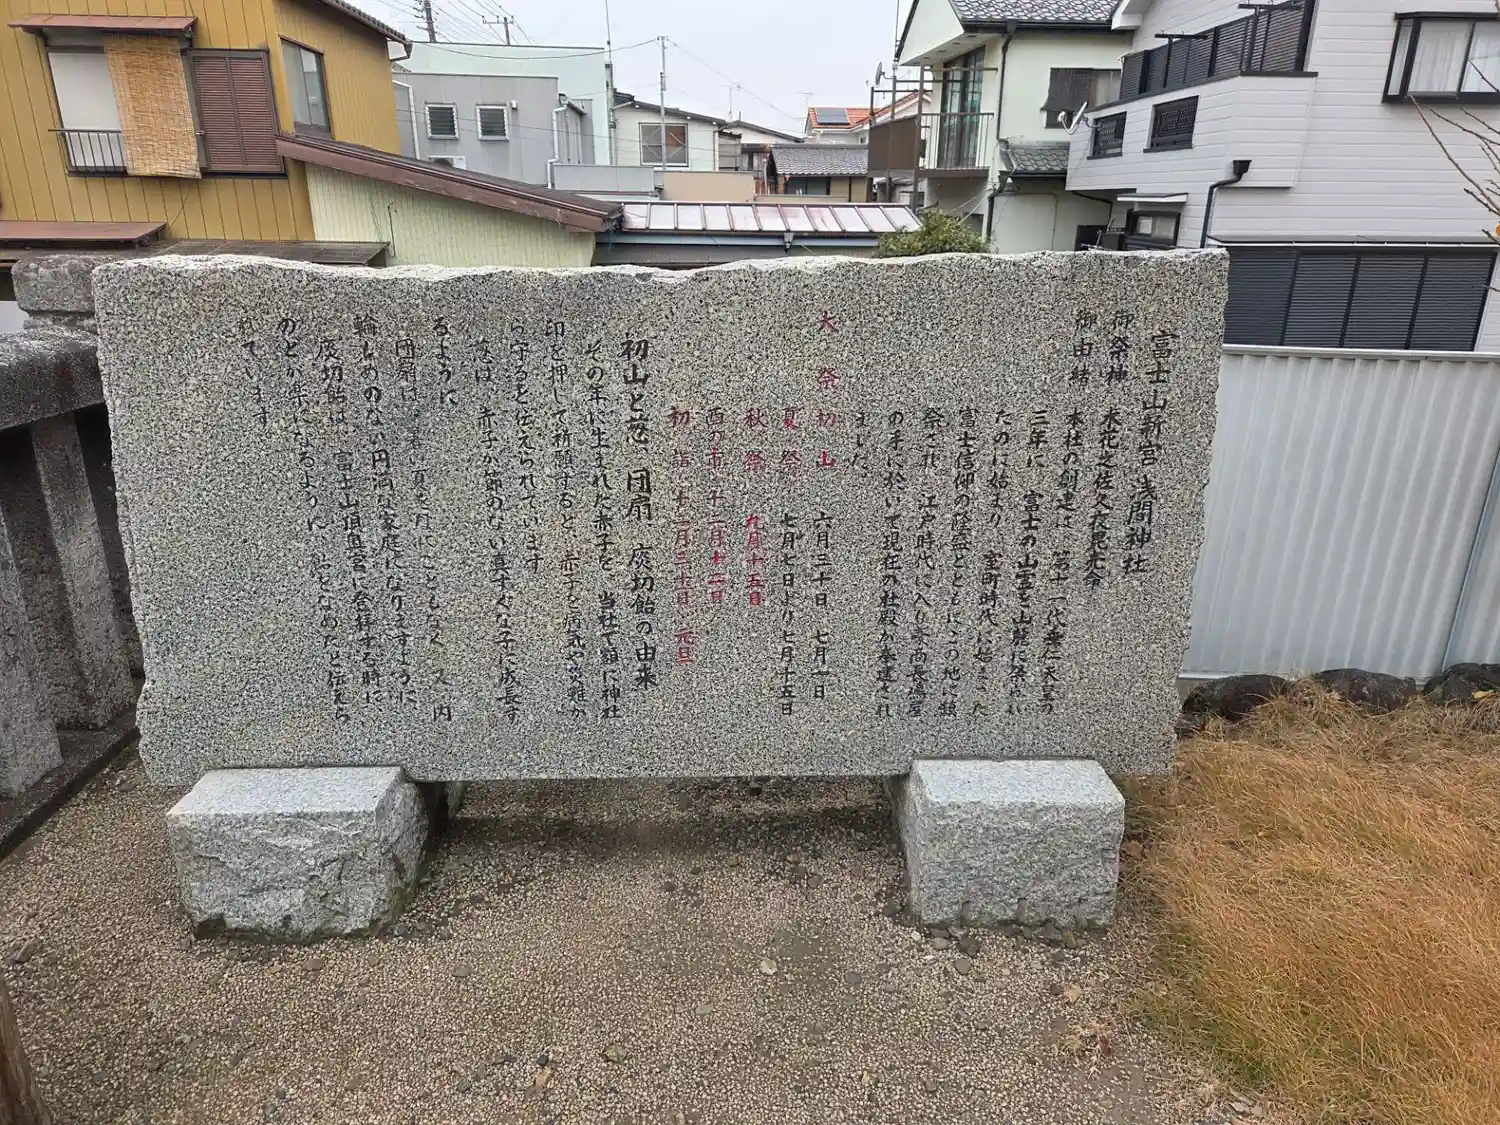 富士山新宮 浅間神社
御祭神 木花之佐久夜毘売命
御由緒 本社の創建は、第十一代垂仁天皇の
三年に、富士の山霊を山麓に祭ら
たのに始まり、室町時代に始まった
富士信仰の隆盛とともにこの地に鎮
祭され、江戸時代に入り
の手に於いて現在の社殿が奉建され
ました。
大祭 初山 六月三十日、七月一日
夏祭 七月七日より七月十五日
秋祭 九月十五日
酉の市 十二月十二日
初詣 十二月三十一日、元旦
初山と葱、団扇、痰切飴の由来
その年に生まれた赤子を、当社で額に神社
印を押して祈願すると、赤子を病気や災難か
ら守ると伝えられています。
は、赤子が節のない真すぐな子に成長す
るように
団扇は、夏をだすこともなく、又、内
輪もめのない円満な家庭になりますように、
痰切飴は、富士山頂奥宮に参拝する時に、
のどが楽になるように、飴をなめたと伝えら
れています。